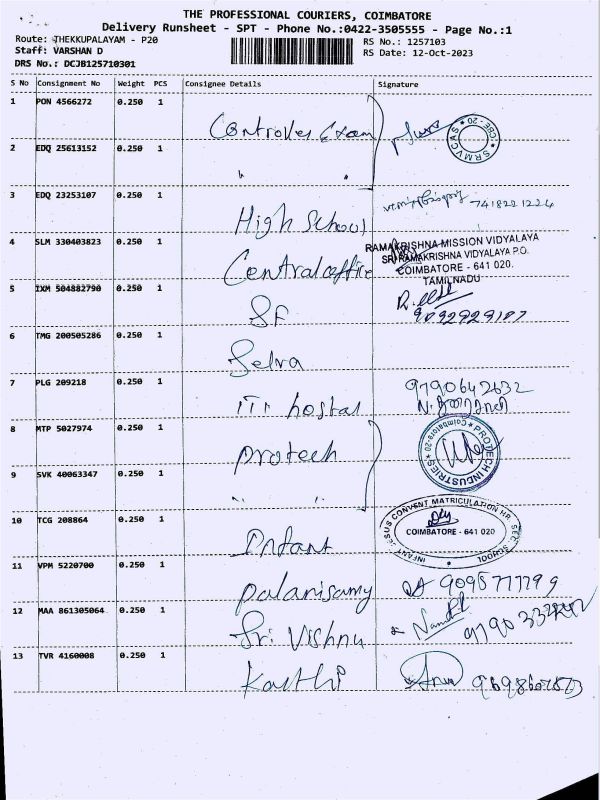 THE PROFESSIONAL COURIERS, COIMBATORE
Delivery Runsheet - SPT - Phone No.:0422-3505555 - Page No.:1
Route: THEKKUPALAYAM - P20
RS No.: 1257103
Staff: VARSHAN D
RS Date: 12-Oct-2023
DRS No.: DCJB125710301
S No Consignment No Weight PCS Consignee Details Signature
1 PON 4566272 0.250 1
Controller Exam
SRMVCAS CBE-20
2 EDQ 25613152 0.250 1
" "
3 EDQ 23253107 0.250 1
High School 7418221224
4 SLM 330403823 0.250 1
Central office
RAMAKRISHNA MISSION VIDYALAYA
SRI RAMAKRISHNA VIDYALAYA P.O.
COIMBATORE - 641 020.
TAMILNADU
5 IXM 504882790 0.250 1
SF
9092929187
6 TMG 200505286 0.250 1
Selva
7 PLG 209218 0.250 1
ITI hostal
9790642632
8 MTP 5027974 0.250 1
protech
PROTECH INDUSTRIES Coimbatore-20
9 SVK 40063347 0.250 1
" "
10 TCG 208864 0.250 1
Infant
INFANT JESUS CONVENT MATRICULATION HR. SEC. SCHOOL
COIMBATORE - 641 020
11 VPM 5220700 0.250 1
Palanisamy
12 MAA 861305064 0.250 1
Sri Vishnu
13 TVR 4160008 0.250 1
Karthi